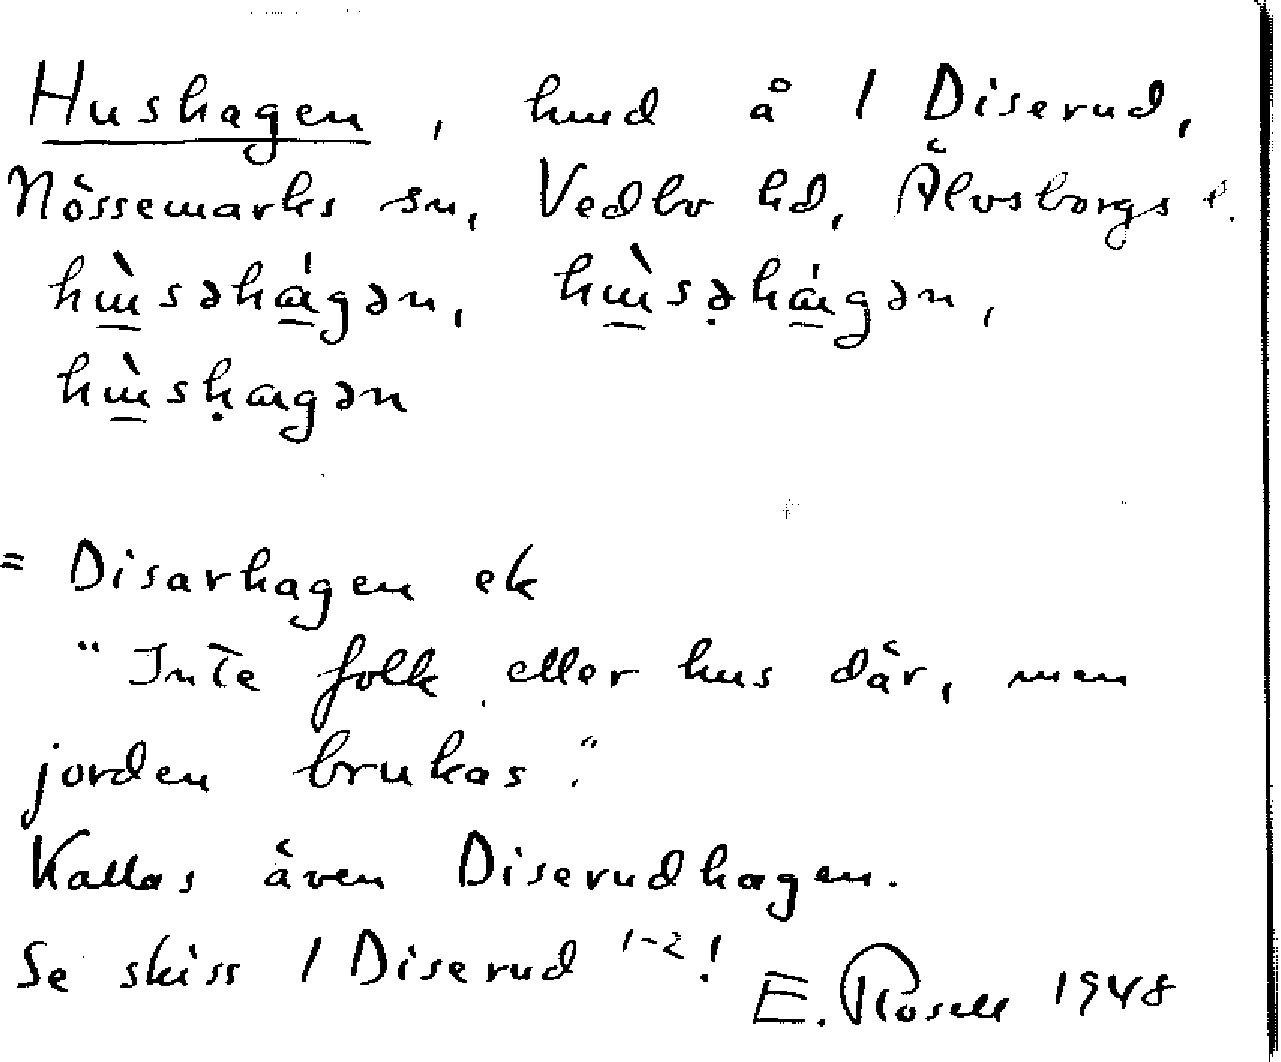 Hushagen, hmd å 1 Diserud,
Nössemarks sn, Vedbo hd, Älvsborgs l.
hɯ̀səhágən, hɯ̀sə̣hágən,
hɯ̀sḥagən
= Disarhagen ek
"Inte folk eller hus där, men
jorden brukas."
Kallas även Diserudhagen.
Se skiss 1 Diserud 1-2!
E. Rosell 1948